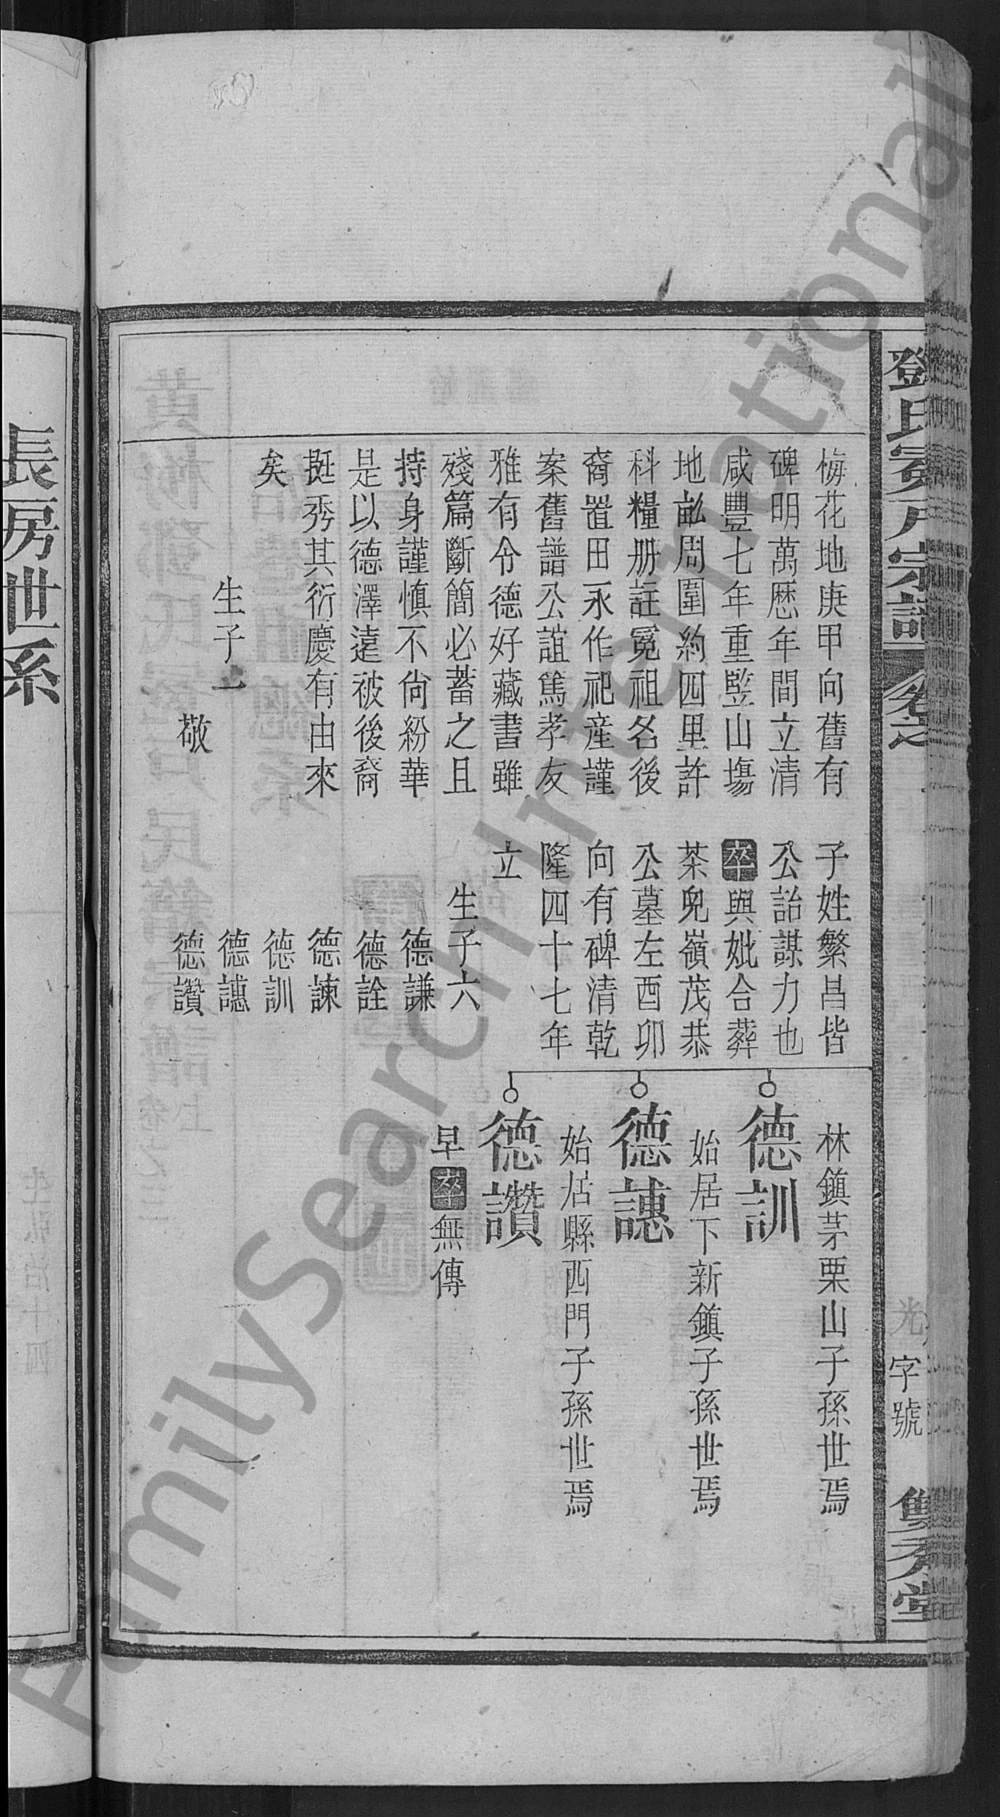 鄧氏
宗譜
光字號
堂
梅花地庚甲向舊有
碑明萬歷年間立清
咸豐七年重竪山塲
地畝周圍約四里許
科糧册註冕祖名後
裔置田永作祀産謹
案舊譜公誼篤孝友
雅有令德好藏書雖
殘篇斷簡必蓄之且
持身謹慎不尙紛華
是以德澤遠被後裔
挺秀其衍慶有由來
矣
生子一
敬
子姓繁昌皆
公詒謀力也
卒與妣合葬
茶兒嶺茂恭
公墓左酉卯
向有碑清乾
隆四十七年
立
生子六
德謙
德詮
德諫
德訓
德譓
德讚
林鎮茅栗山子孫世焉
德訓
始居下新鎮子孫世焉
德譓
始居縣西門子孫世焉
德讚
早卒無傳
長房世系
FamilySearch International